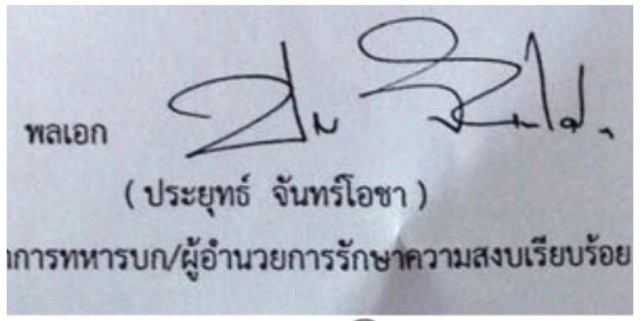 พลเอก
( ประยุทธ์ จันทร์โอชา )
าการทหารบก/ผู้อำนวยการรักษาความสงบเรียบร้อย